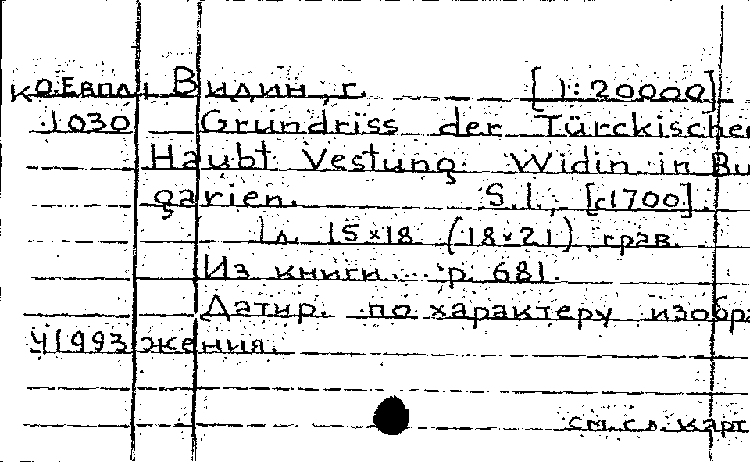 К О.Евпл. Видин, г. [1:20000]
1030 Grundriss der Türckischen
Haubt Vestung Widin in Bu
garien. S.l., [c1700].
1 л. 15×18 (18×21), грав.
Из книги...: p. 681.
Датир. по характеру изобра
Ч1993 жения.
см. сл. карт